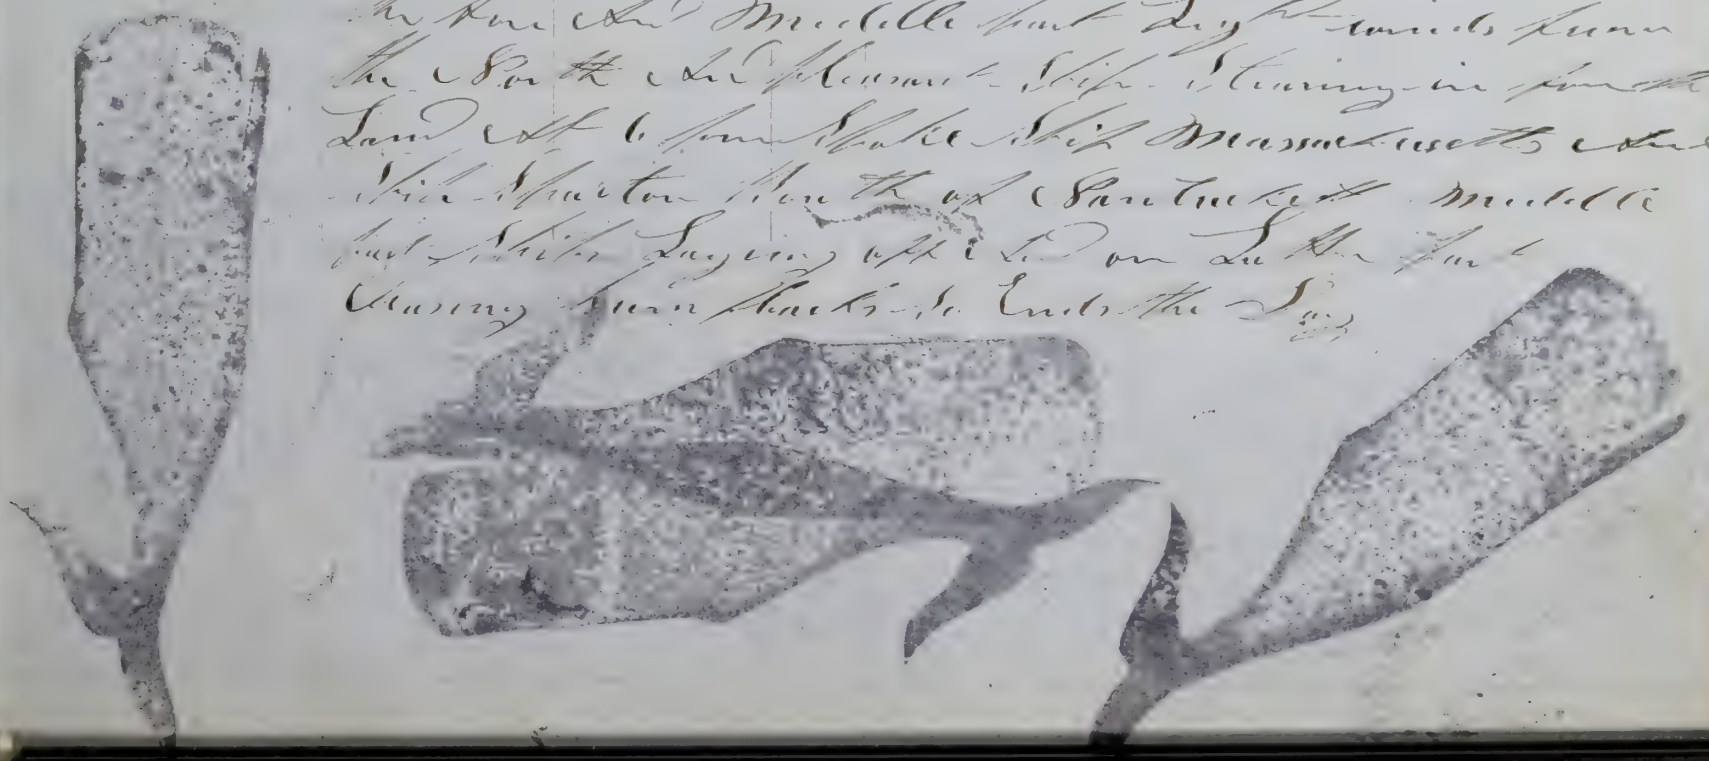 the fore And Middle part Light winds from
the North And pleasant Ship Stearing in for the
Land At 6 Spoke Ship Massachusetts And
Ship Sparton Both of Nantucket Middle
part Ships Laying off And on Latter part
So Ends the Day